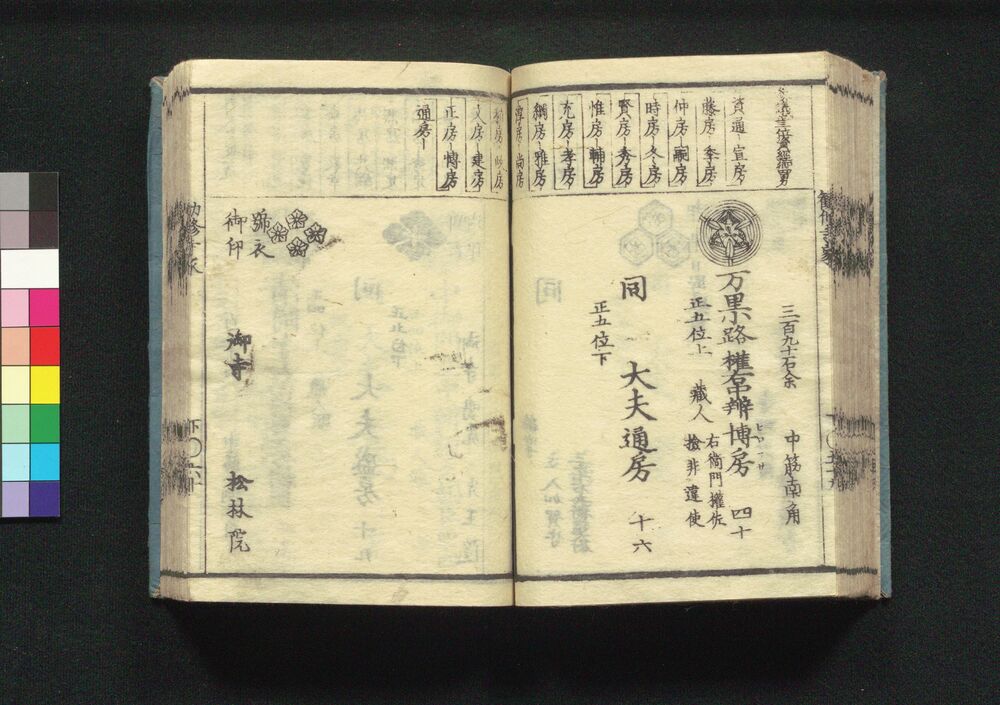 資通ー宣房ー
藤房ー季房ー
仲房ー嗣房ー
時房ー冬房ー
賢房ー秀房ー
惟房ー輔房ー
充房ー孝房ー
綱房ー雅房ー
淳房ー尚房
文房ー建房
正房ー博房
通房ー
三百九十石余
中筋南角
万里路権右中辨博房
四十
正五位上
蔵人
右衛門権佐
検非違使
同
大夫通房
十六
正五位下
号衣
御印
御寺
松林院